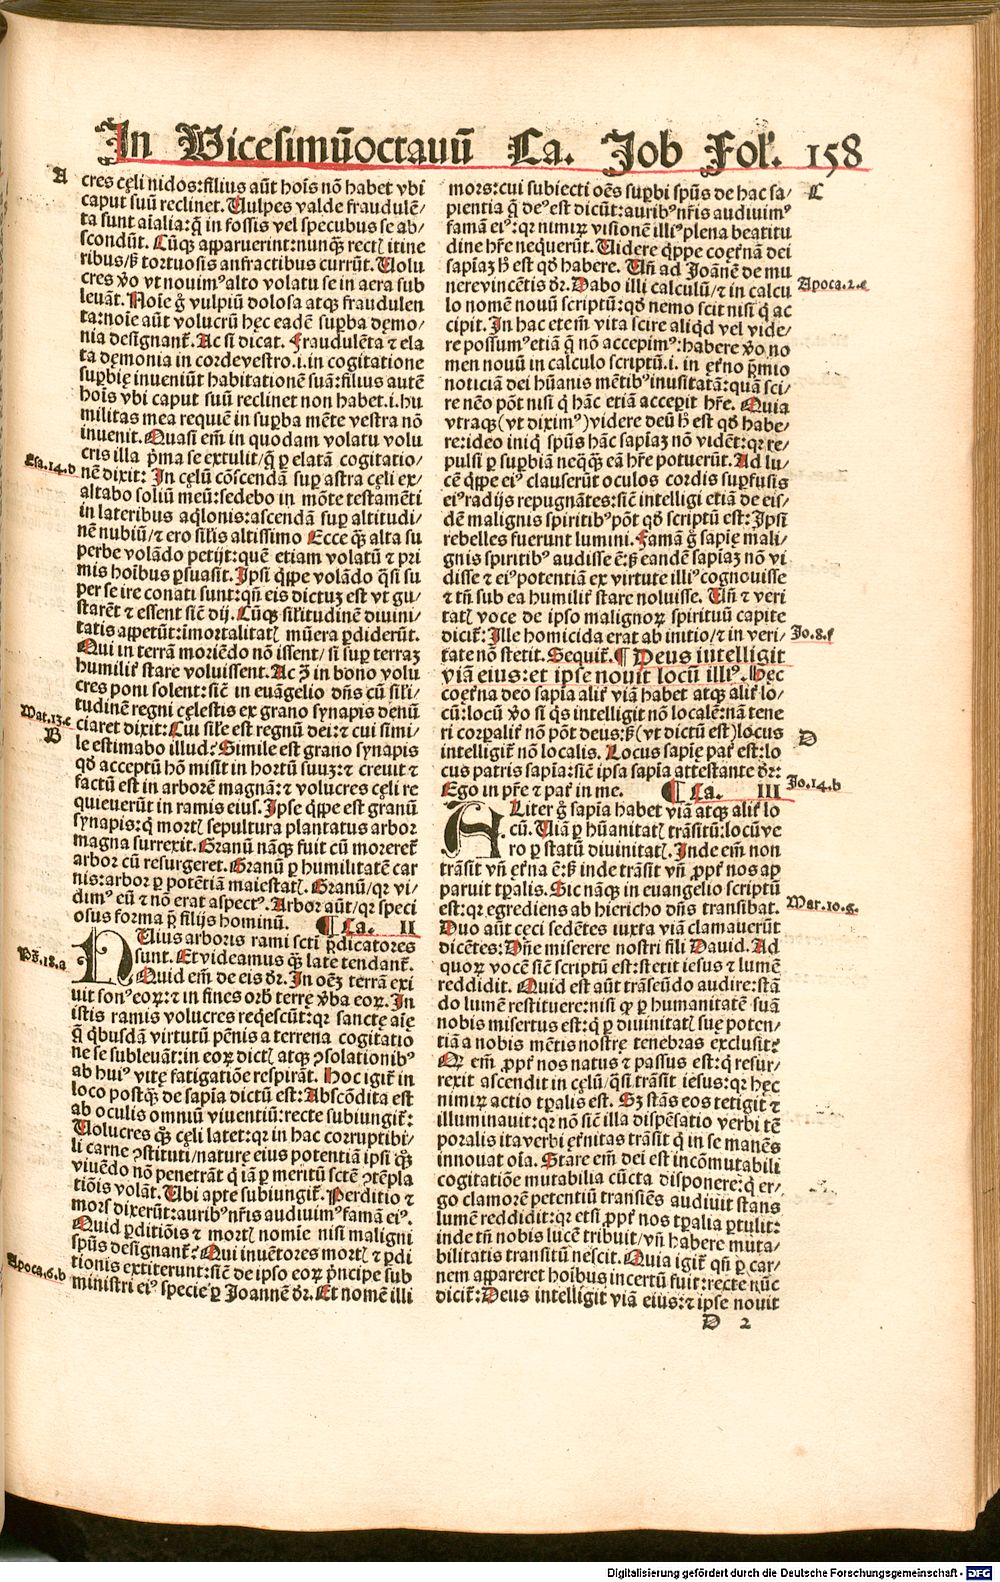 In Vicesimūoctauū Ca. Job Fol'. 158
A
cres cęli nidos:filius aūt hoīs nō habet vbi
caput suū reclinet. Uulpes valde fraudulē/
ta sunt aīalia:q̄ in fossis vel specubus se ab/
scondūt. Cūqꝫ apparuerint:nunqꝫ rectꝭ itine
ribus/sꝫ tortuosis anfractibus currūt. Uolu
cres v̄o vt nouimꝰ alto volatu se in aera sub
leuāt. Noīe ḡ vulpiū dolosa atqꝫ fraudulen
ta:noīe aūt volucrū hęc eadē supba dęmo/
nia designant᷑. Ac si dicat. Fraudulēta ⁊ ela
ta dęmonia in corde vestro.i.in cogitatione
supbię inueniūt habitationē suā:filius autē
hoīs vbi caput suū reclinet non habet.i.hu
militas mea requiē in supba mēte vestra nō
inuenit. Quasi em̄ in quodam volatu volu
cris illa p̄ma se extulit/q̄ ꝑ elatā cogitatio/
Esa.14.b
nē dixit: In cęlū cōscendā sup astra cęli ex/
altabo soliū meū:sedebo in mōte testamēti
in lateribus aq̄lonis:ascendā sup altitudi/
nē nubiū/⁊ ero silis altissimo Ecce qꝫ alta su
perbe volādo petijt:quē etiam volatū ⁊ pri
mis hoībus ꝑsuasit. Ipsi q̄ppe volādo q̄si su
per se ire conati sunt:qn̄ eis dictuꝫ est vt gu/
starēt ⁊ essent sic̄ dij. Cūqꝫ sil'itudinē diuini/
tatis appetūt:imortalitatꝭ mūera ꝑdiderūt.
Qui in terrā moriēdo nō issent/si sup terraꝫ
humilit᷑ stare voluissent. Ac ꝫ̄ in bono volu
cres poni solent:sic̄ in euāgelio dn̄s cū sil'i/
tudinē regni cęlestis ex grano synapis denū
Mat.13.c
ciaret dixit: Cui sil'e est regnū dei:⁊ cui simi/
B
le estimabo illud? Simile est grano synapis
qd̄ acceptū hō misit in hortū suuꝫ:⁊ creuit ⁊
factū est in arborē magnā:⁊ volucres cęli re
quieuerūt in ramis eius. Ipse q̄ppe est granū
synapis:q̄ mortꝭ sepultura plantatus arbor
magna surrexit. Granū nāqꝫ fuit cū moreret᷑
arbor cū resurgeret. Granū ꝑ humilitatē car
nis:arbor ꝑ potētiā maiestatꝭ. Granū/qꝛ vi/
dimꝰ eū ⁊ nō erat aspectꝰ. Arbor aūt/qꝛ speci
osus forma p̄ filijs hominū. ¶ Ca. II
HUius arboris rami scti p̄dicatores
sunt. Et videamus qꝫ late tendant᷑.
Ps.18.a
Quid em̄ de eis dr̄. In oēꝫ terrā exi
uit sonꝰ eoꝝ:⁊ in fines orb terrę v̄ba eoꝝ. In
istis ramis volucres req̄escūt:qꝛ sanctę aīę
q̄ q̄busdā virtutū pēnis a terrena cogitatio
ne se subleuāt:in eoꝝ dictꝭ atqꝫ ꝯsolationibꝰ
ab huiꝰ vitę fatigatiōe respirāt. Hoc igit᷑ in
loco postqꝫ de sapīa dictū est: Abscōdita est
ab oculis omniū viuentiū:recte subiungit᷑:
Uolucres qꝫ cęli latet:qꝛ in hac corruptibi/
li carne ꝯstituti/naturę eius potentiā ipsi qꝫ
viuēdo nō penetrāt q̄ iā ꝑ meritū sctē ꝯtēpla
tiōis volāt. Ubi apte subiungit᷑. Perditio ⁊
mors dixerūt:auribꝰ nr̄is audiuimꝰ famā eiꝰ.
Quid ꝑditiōis ⁊ mortꝭ nomīe nisi maligni
spūs designant᷑? Qui inuētores mortꝭ ⁊ ꝑdi
Apoca.6.b
tionis extiterunt:sic̄ de ipso eoꝝ p̄ncipe sub
ministri eiꝰ specie ꝑ Joannē dr̄. Et nomē illi
mors:cui subiecti oēs supbi spūs de hac sa/
C
pientia q̄ deꝰ est dicūt:auribꝰ nr̄is audiuimꝰ
famā eiꝰ:qꝛ nimiꝝ visionē illiꝰ plena beatitu
dine hr̄e nequerūt. Uidere q̄ppe coęt̄nā dei
sapīaꝫ hꝫ est qd̄ habere. Un̄ ad Joānē de mu
Apoca.2.c
nere vincētis dr̄. Dabo illi calculū/⁊ in calcu
lo nomē nouū scriptū:qd̄ nemo scit nisi q̄ ac
cipit. In hac etem̄ vita scire aliqd̄ vel vide/
re possumꝰ etiā q̄ nō accepimꝰ:habere v̄o no
men nouū in calculo scriptū.i. in ęt̄no p̄mio
noticiā dei hūanis mētibꝰ inusitatā:quā sci/
re nēo pōt nisi q̄ hāc etiā acceꝑit hr̄e. Quia
vtraqꝫ (vt diximꝰ) videre deū hꝫ est qd̄ habe/
re:ideo iniq̄ spūs hāc sapīaꝫ nō vidēt:qꝛ re/
pulsi ꝑ supbiā neq̄qꝫ eā hr̄e potuerūt. Ad lu/
cē q̄ppe eiꝰ clauserūt oculos cordis supfusis
eiꝰ radijs repugnātes:sic̄ intelligi etiā de eis/
dē malignis spiritibꝰ pōt qd̄ scriptū est: Ipsi
rebelles fuerunt lumini. Famā ḡ sapię mali/
gnis spiritibꝰ audisse ē:sꝫ eandē sapīaꝫ nō vi
disse ⁊ eiꝰ potentiā ex virtute illiꝰ cognouisse
⁊ tn̄ sub ea humilit᷑ stare noluisse. Un̄ ⁊ veri
tatꝭ voce de ipso malignoꝝ spirituū capite
dicit᷑: Ille homicida erat ab initio/⁊ in veri/
Jo.8.f
tate nō stetit. Sequit᷑. ¶ Deus intelligit
viā eius:et ipse nouit locū illiꝰ. Hęc
coęt̄na deo sapīa alit᷑ viā habet atqꝫ alit᷑ lo/
cū:locū v̄o si q̄s intelligit nō localē:nā tene
ri corꝑalit᷑ nō pōt deus:sꝫ(vt dictū est)locus
D
intelligit᷑ nō localis. Locus sapię pat᷑ est:lo
cus patris sapīa:sic̄ ipsa sapīa attestante dr̄:
Jo.14.b
Ego in pr̄e ⁊ pat᷑ in me. ¶ Ca. III
ALiter ḡ sapīa habet viā atqꝫ alit᷑ lo
cū. Uiā ꝑ hūanitatꝭ trāsitū:locū ve
ro ꝑ statū diuinitatꝭ. Inde em̄ non
trāsit vn̄ ęt̄na ē:sꝫ inde trāsit vn̄ ꝓpt᷑ nos ap
paruit tꝑalis. Sic nāqꝫ in euangelio scriptū
Mar.10.g.
est:qꝛ egrediens ab hiericho dn̄s transibat.
Duo aūt cęci sedētes iuxta viā clamauerūt
dicētes: Dn̄e miserere nostri fili Dauid. Ad
quoꝝ vocē sic̄ scriptū est:stetit iesus ⁊ lumē
reddidit. Quid est aūt trāseūdo audire:stā
do lumē restituere:nisi ꝙ ꝑ humanitatē suā
nobis misertus est:q̄ ꝑ diuinitatꝭ suę poten/
tiā a nobis mētis nostrę tenebras exclusit?
Qꝛ em̄ ꝓpt᷑ nos natus ⁊ passus est:q̄ resur/
rexit ascendit in cęlū/q̄si trāsit iesus:qꝛ hęc
nimiꝝ actio tꝑalis est. Sꝫ stās eos tetigit ⁊
illuminauit:qꝛ nō sic̄ illa dispēsatio verbi tē
poralis ita verbi ęt̄nitas trāsit q̄ in se manēs
innouat oīa. Stare em̄ dei est incōmutabili
cogitatiōe mutabilia cūcta disponere:q̄ er/
go clamorē petentiū transiēs audiuit stans
lumē reddidit:qꝛ etsi ꝓpt᷑ nos tꝑalia ꝑtulit:
inde tn̄ nobis lucē tribuit/vn̄ habere muta/
bilitatis transitū nescit. Quia igit᷑ qn̄ ꝑ car/
nem appareret hoībus incertū fuit:recte nūc
dicit᷑: Deus intelligit viā eius:⁊ ipse nouit
D 2
Digitalisierung gefördert durch die Deutsche Forschungsgemeinschaft - DFG